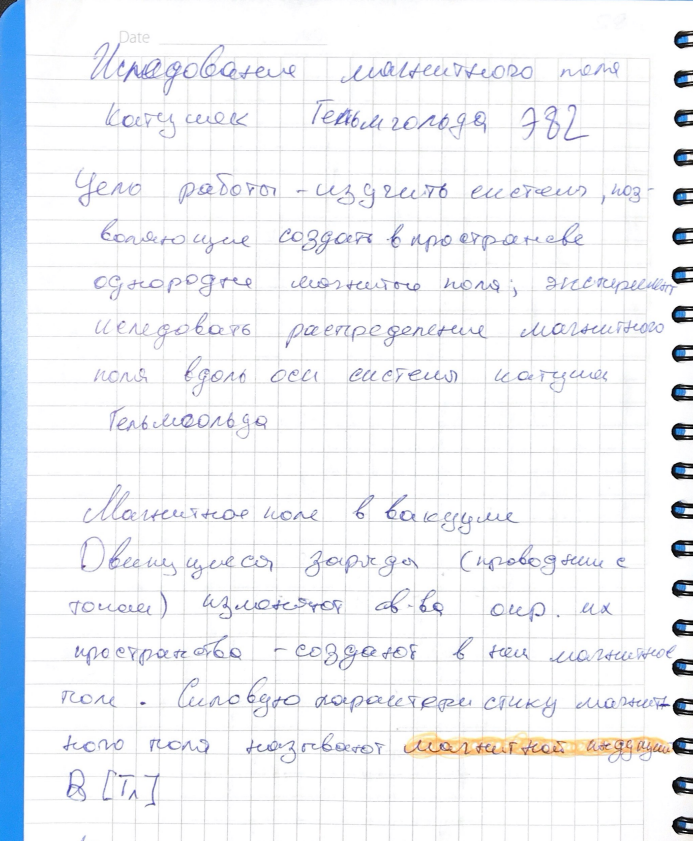 Date
Иследование магнитного поля
Катушек Гельмгольда Э82
Цель работы - изучить системы, поз-
воляющие создать в пространсве
однородные магнитые поля; эксперемент
иследовать распределение магнитного
поля вдоль оси системы катушек
Гельмгольда
Магнитное поле в вакууме
Движущиеся заряды (проводники с
током) изменяют св-ва окр. их
пространства - создают в нем магнитное
поле. Силовую характеристику магнит-
ного поля называют магнитной индукции
B [Тл]